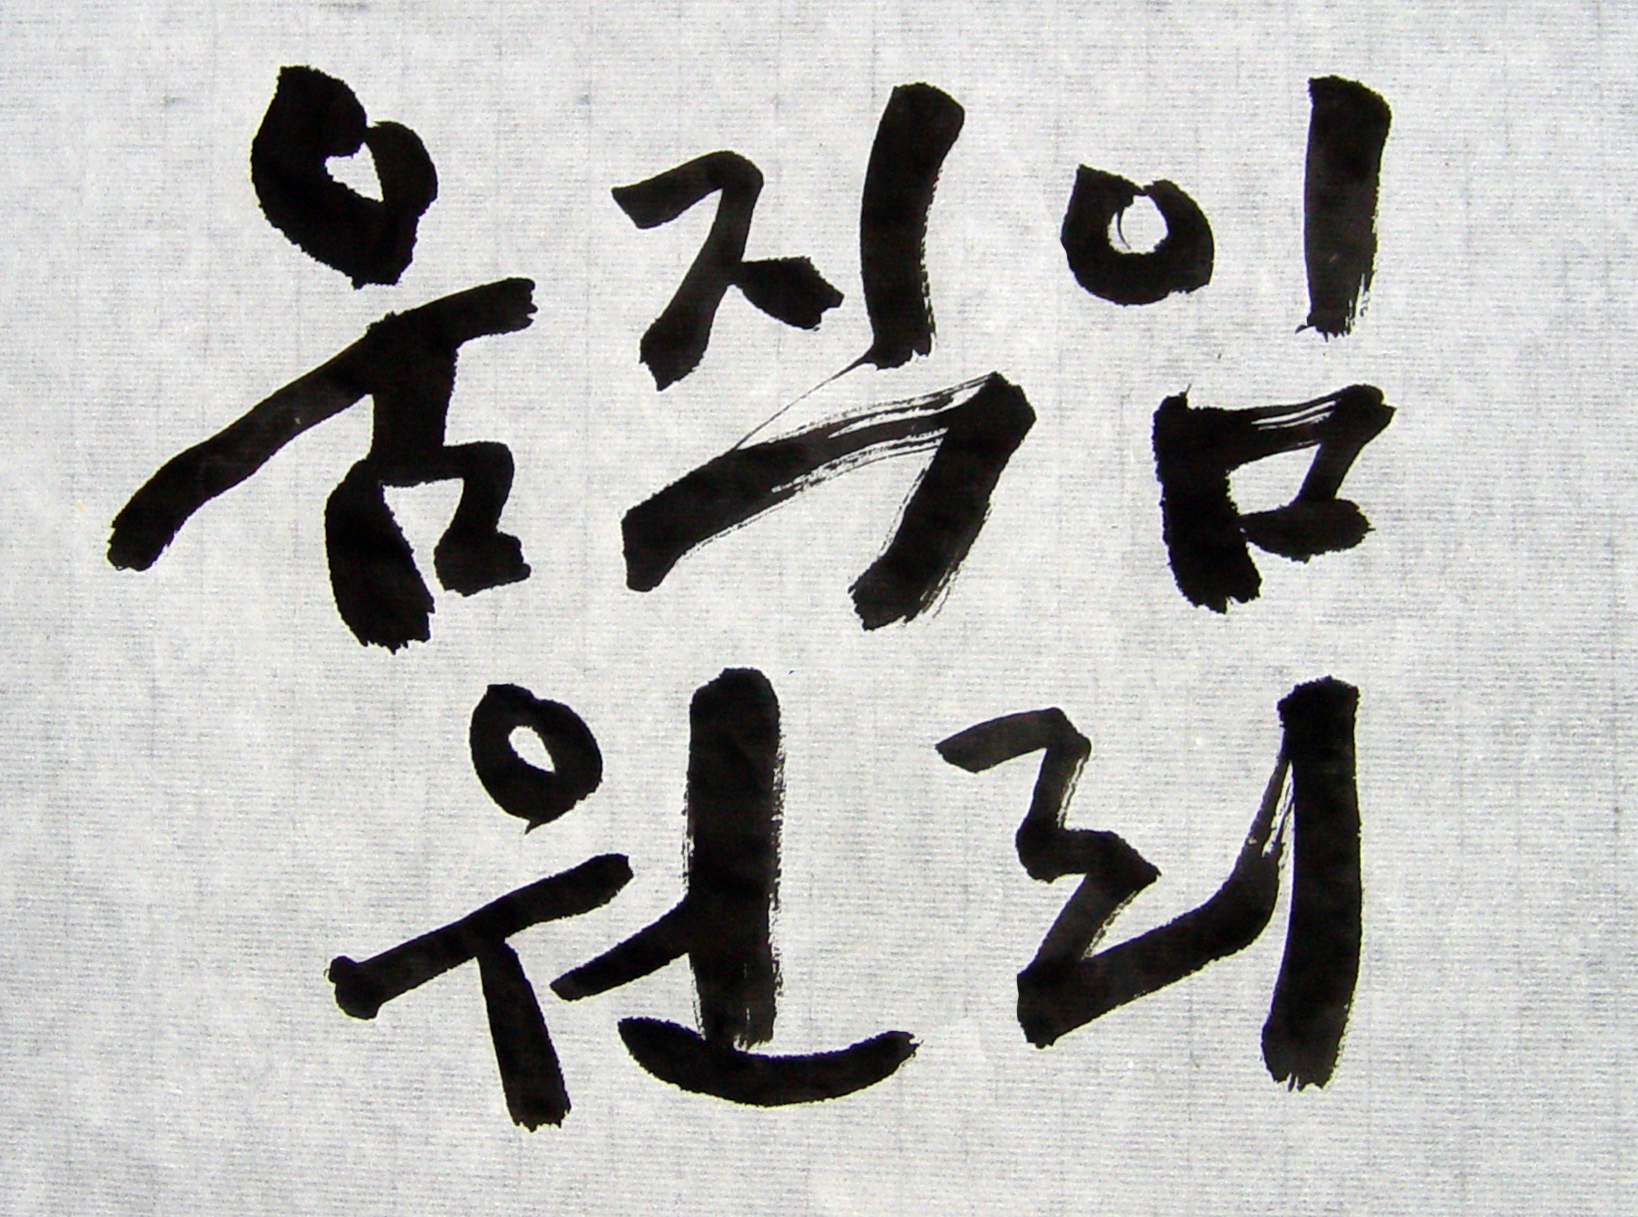 움직임
원리